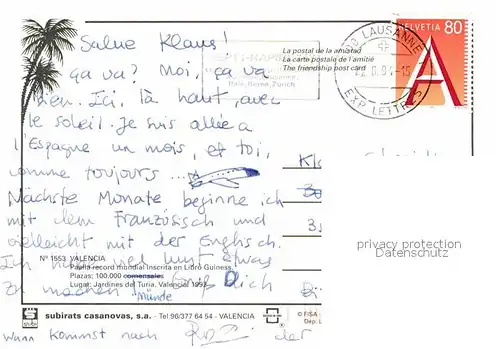 Salue Klaus!
ça va? Moi, ça va
bien. Ici, là haut, avec
le soleil. Je suis allée a
l'Espagne un mois, et toi,
comme toujours ...
Nächste Monate beginne ich
mit dem Französisch und
vielleicht mit der Englisch.
Ich habe viel lust etwas
zu machen. Dich
münde
wann kommst nach der
La postal de la amistad
La carte postale de l'amitié
The friendship post card
LAUSANNE
EXP LETTRES
HELVETIA 80
A
privacy protection
Datenschutz
Nº 1553 VALENCIA
Paella record mundial Inscrita en Libro Guiness.
Plazas: 100.000 comensales
Lugar: Jardines del Turia. Valencia 1992
subirats casanovas, s.a. - Tel 96/377 64 54 - VALENCIA
© FISA
Dep. L